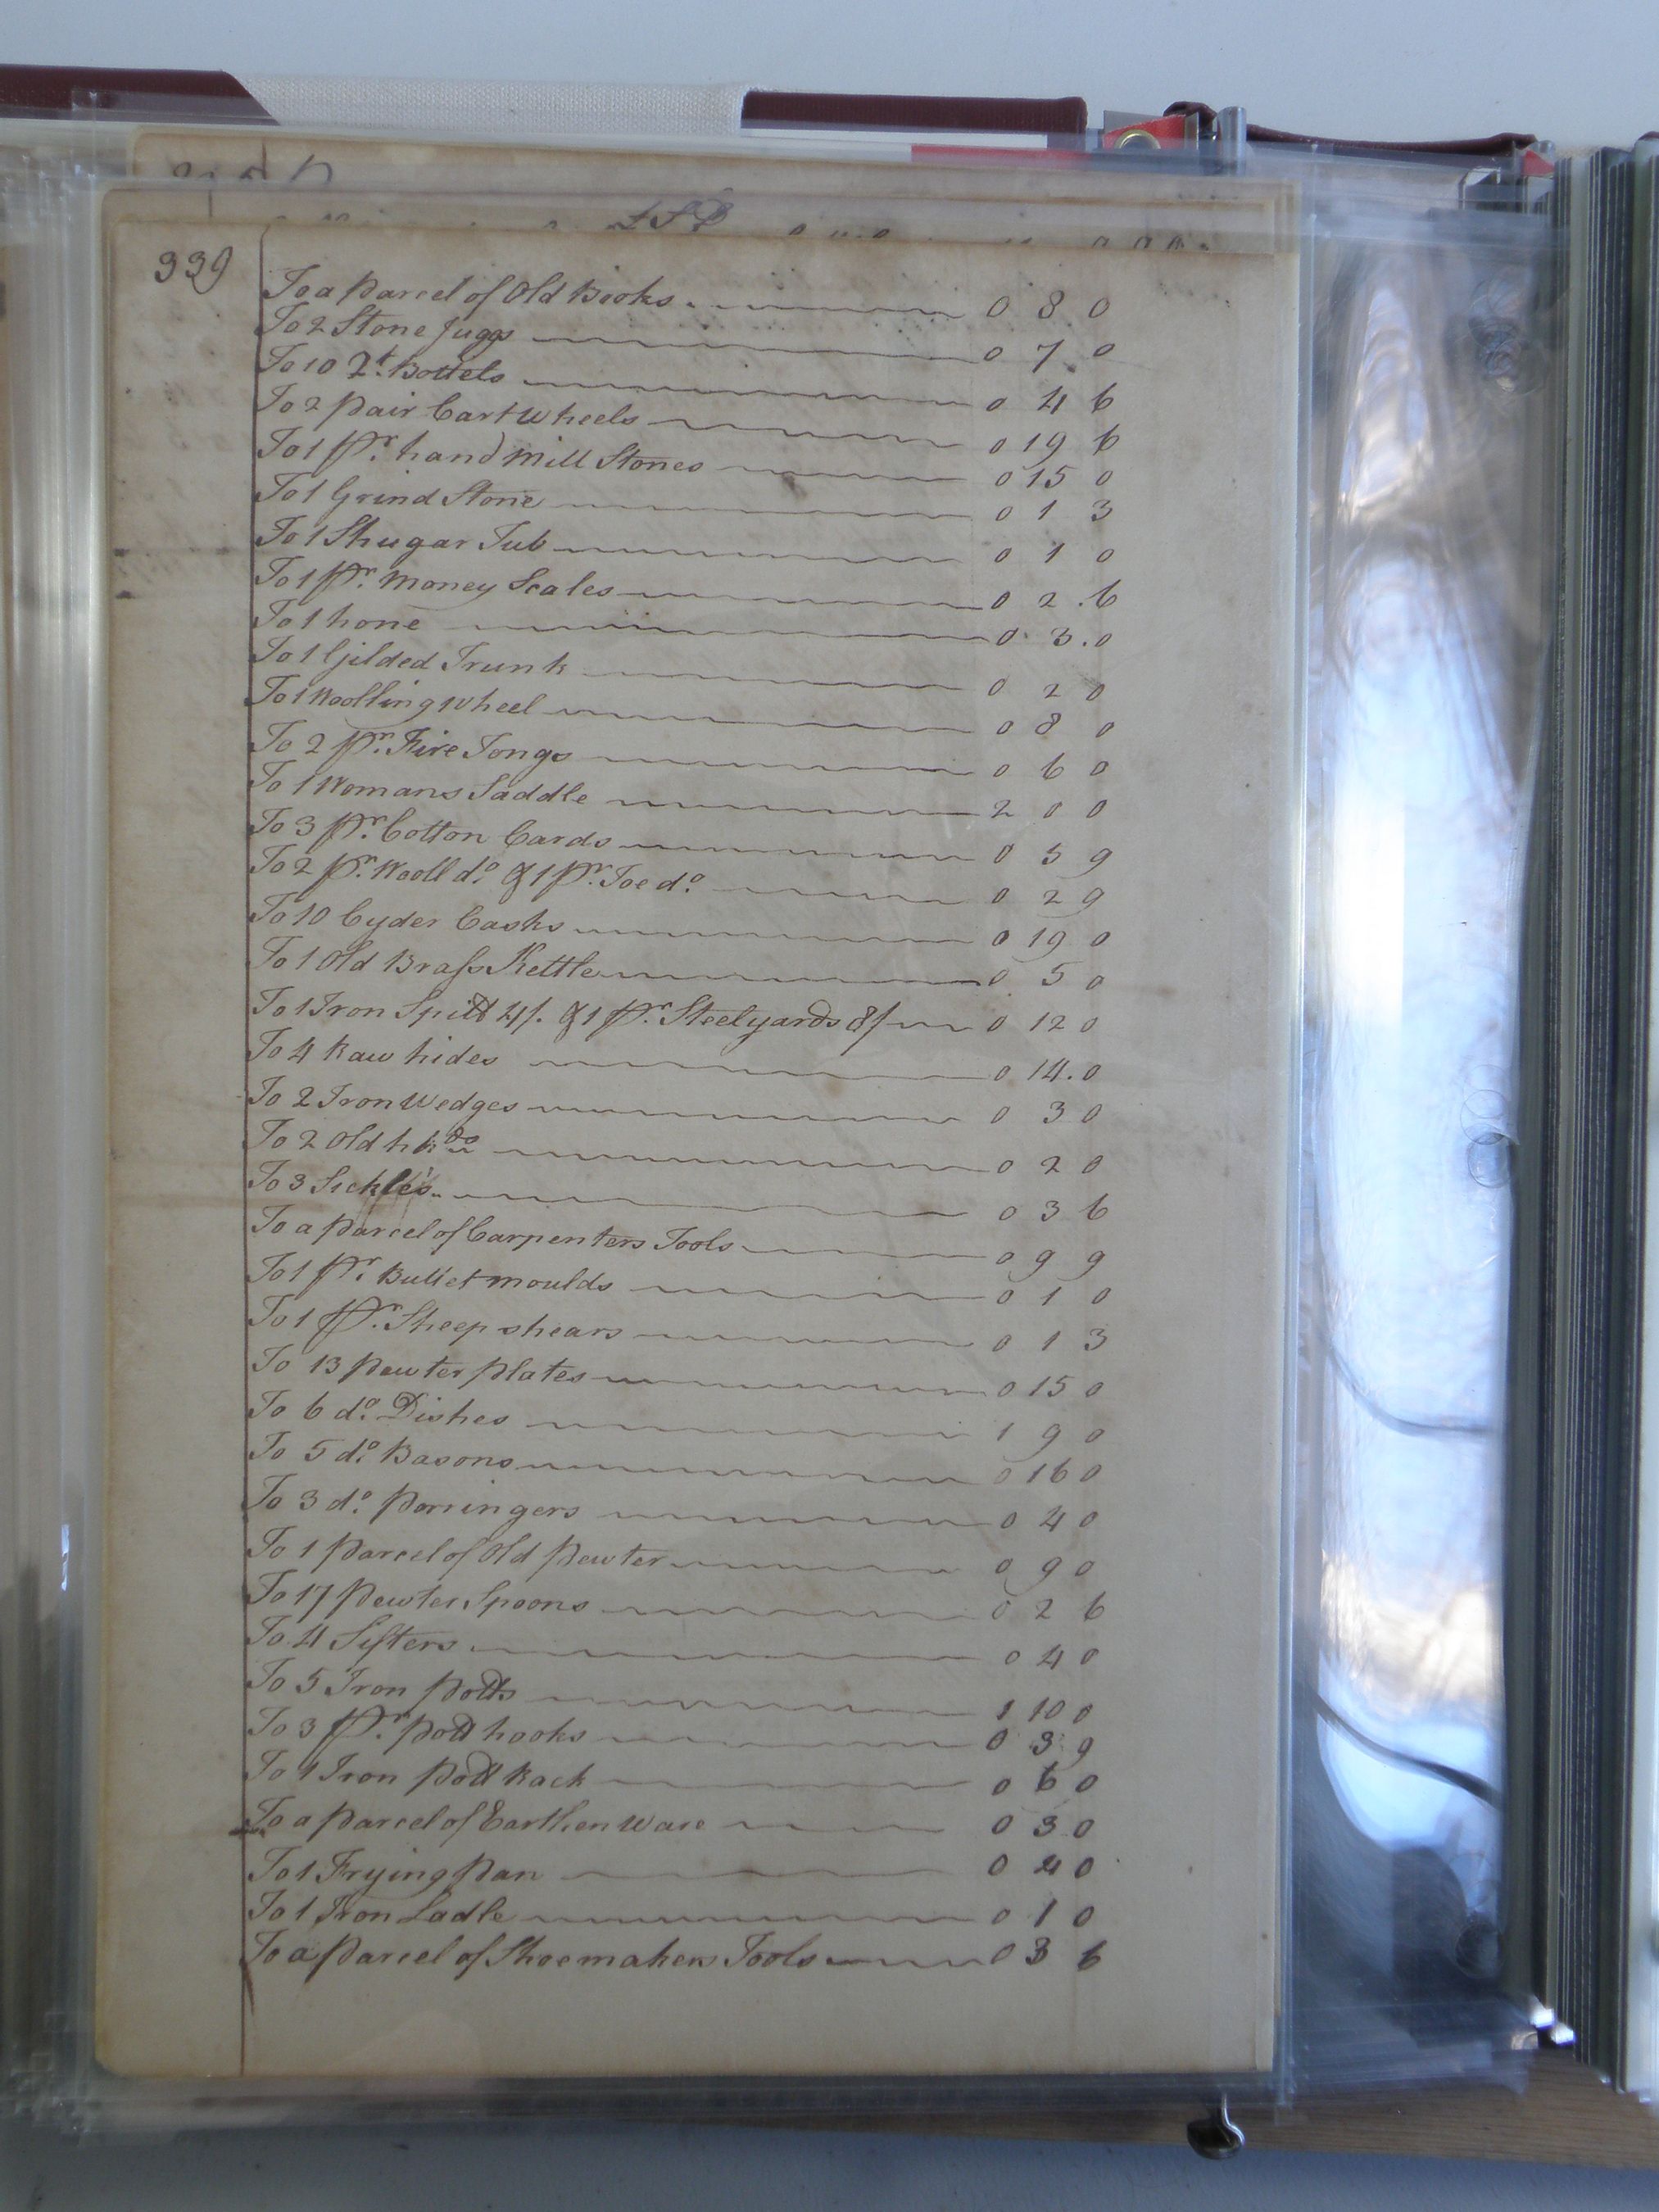 339
£ S D
To a parcel of Old Books 0 8 0
To 2 Stone Juggs 0 7 0
To 10 2t. Bottels 0 4 6
To 2 pair Cart Wheels 0 19 6
To 1 Pr. hand Mill Stones 0 15 0
To 1 Grind Stone 0 1 3
To 1 Shugar Tub 0 1 0
To 1 Pr. Money Scales 0 2.6
To 1 hone 0 3.0
To 1 Gilded Trunk 0 2 0
To 1 Woolling wheel 0 8 0
To 2 Pr. Fire Tongs 0 6 0
To 1 Womans Saddle 2 0 0
To 3 Pr. Cotton Cards 0 5 9
To 2 Pr. Wooll do. & 1 Pr. Toe do. 0 2 9
To 10 Cyder Casks 0 19 0
To 1 Old Brass Kettle 0 5 0
To 1 Iron Spitt 4/. & 1 Pr. Steelyards 8/ 0 12 0
To 4 Raw hides 0 14.0
To 2 Iron Wedges 0 3 0
To 2 Old 0 2 0
To 3 Sickles 0 3 6
To a parcel of Carpenters Tools 0 9 9
To 1 Pr. Bullet moulds 0 1 0
To 1 Pr. Sheep shears 0 1 3
To 13 pewter plates 0 15 0
To 6 do. Dishes 1 9 0
To 5 do. Basons 0 16 0
To 3 do. porringers 0 4 0
To 1 parcel of Old pewter 0 9 0
To 17 pewter Spoons 0 2 6
To 4 Sifters 0 4 0
To 5 Iron potts 1 10 0
To 3 Pr. pott hooks 0 3 9
To 1 Iron pott Rack 0 6 0
To a parcel of Earthen Ware 0 3 0
To 1 Frying pan 0 4 0
To 1 Iron Ladle 0 1 0
To a parcel of Shoemakers Tools 0 3 6